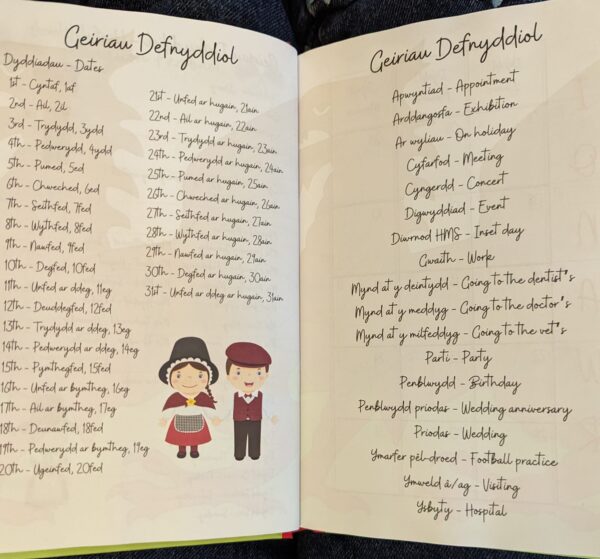 Geiriau Defnyddiol
Dyddiadau - Dates
1st - Cyntaf, 1af
2nd - Ail, 2il
3rd - Trydydd, 3ydd
4th - Pedwerydd, 4ydd
5th - Pumed, 5ed
6th - Chweched, 6ed
7th - Seithfed, 7fed
8th - Wythfed, 8fed
9th - Nawfed, 9fed
10th - Degfed, 10fed
11th - Unfed ar ddeg, 11eg
12th - Deuddegfed, 12fed
13th - Trydydd ar ddeg, 13eg
14th - Pedwerydd ar ddeg, 14eg
15th - Pymthegfed, 15fed
16th - Unfed ar bymtheg, 16eg
17th - Ail ar bymtheg, 17eg
18th - Deunawfed, 18fed
19th - Pedwerydd ar bymtheg, 19eg
20th - Ugeinfed, 20fed
21st - Unfed ar hugain, 21ain
22nd - Ail ar hugain, 22ain
23rd - Trydydd ar hugain, 23ain
24th - Pedwerydd ar hugain, 24ain
25th - Pumed ar hugain, 25ain
26th - Chweched ar hugain, 26ain
27th - Seithfed ar hugain, 27ain
28th - Wythfed ar hugain, 28ain
29th - Nawfed ar hugain, 29ain
30th - Degfed ar hugain, 30ain
31st - Unfed ar ddeg ar hugain, 31ain
Geiriau Defnyddiol
Apwyntiad - Appointment
Arddangosfa - Exhibition
Ar wyliau - On holiday
Cyfarfod - Meeting
Cyngerdd - Concert
Digwyddiad - Event
Diwrnod HMS - Inset day
Gwaith - Work
Mynd at y deintydd - Going to the dentist's
Mynd at y meddyg - Going to the doctor's
Mynd at y milfeddyg - Going to the vet's
Parti - Party
Penblwydd - Birthday
Penblwydd priodas - Wedding anniversary
Priodas - Wedding
Ymarfer pêl-droed - Football practice
Ymweld â/ag - Visiting
Ysbyty - Hospital